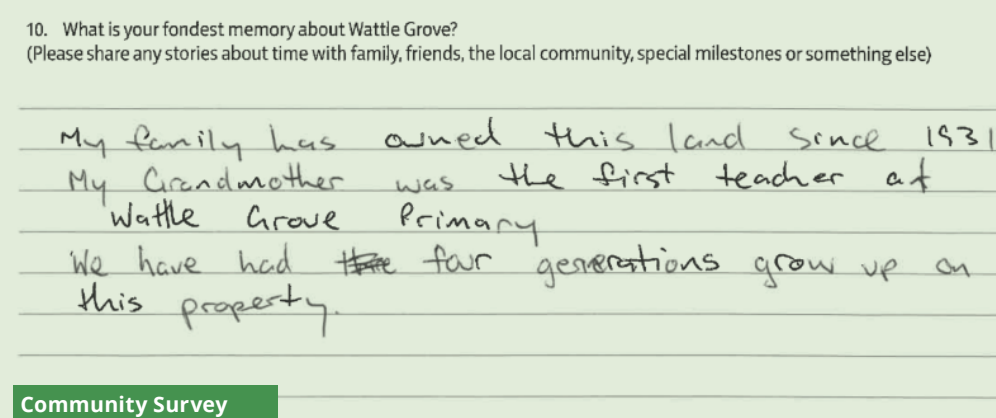 10. What is your fondest memory about Wattle Grove?
(Please share any stories about time with family, friends, the local community, special milestones or something else)
My family has owned this land since 1931
My Grandmother was the first teacher at
Wattle Grove Primary
We have had four generations grow up on
this property.
Community Survey